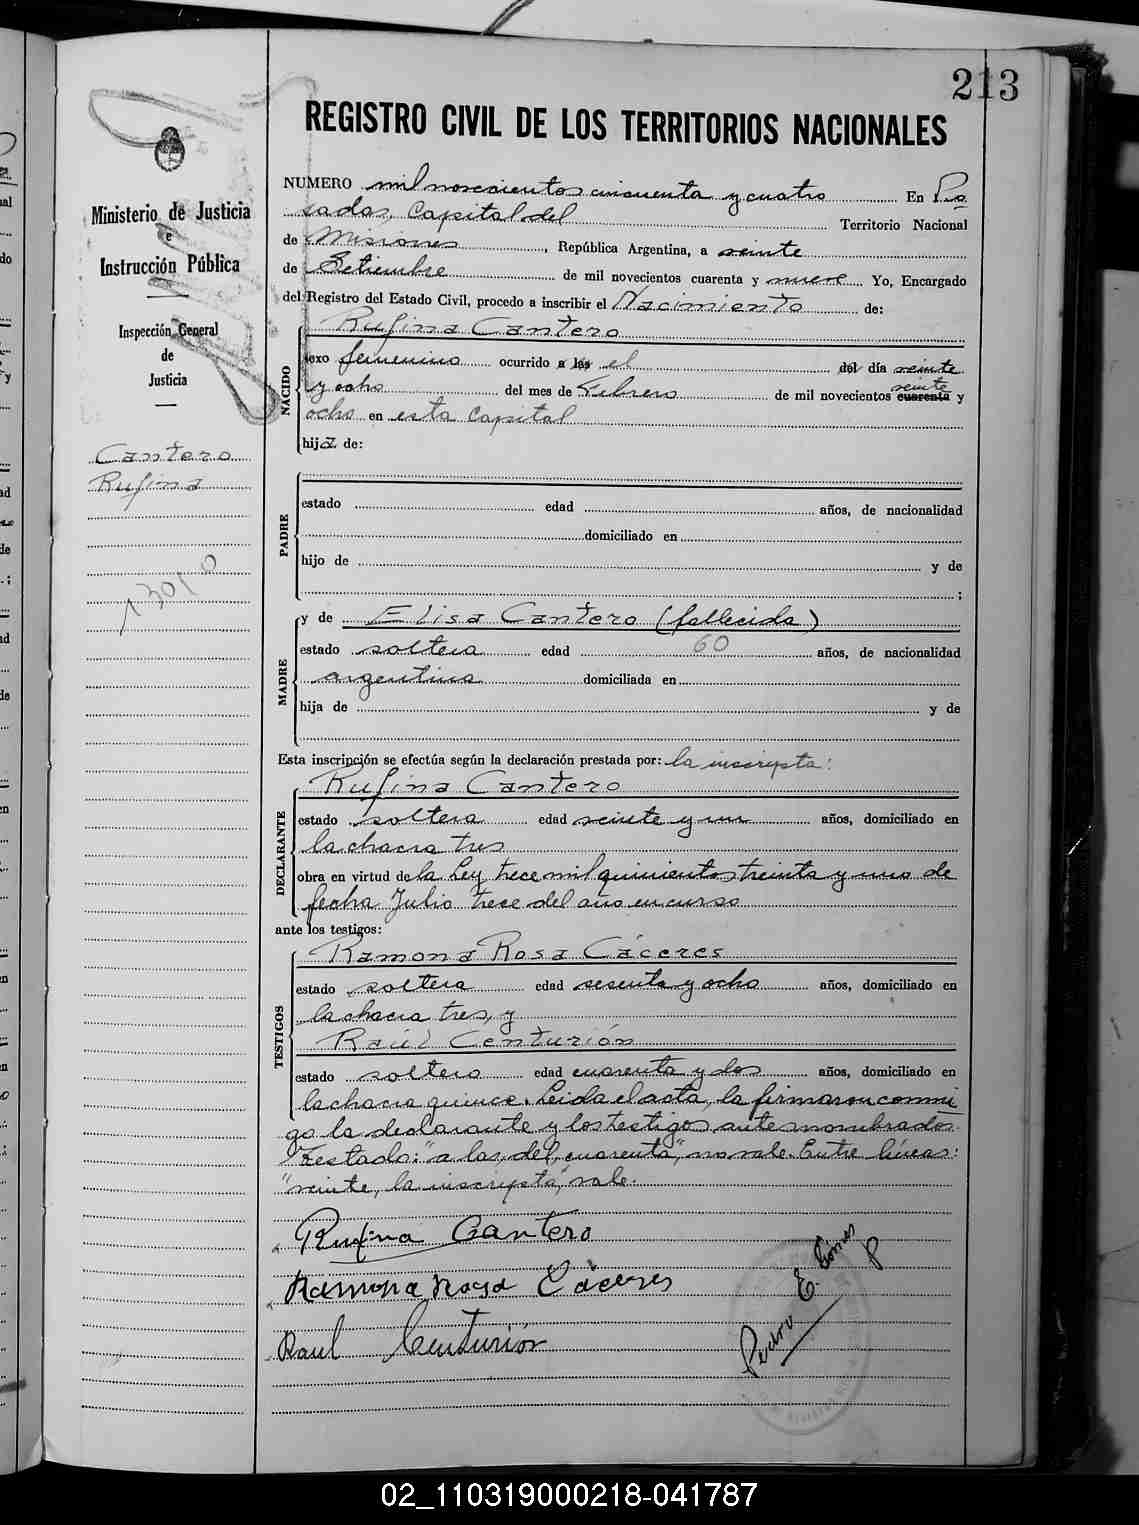 213
REGISTRO CIVIL DE LOS TERRITORIOS NACIONALES
Ministerio de Justicia
e
Instrucción Pública
Inspección General
de
Justicia
Cantero
Rufina
NUMERO mil novecientos cincuenta y cuatro En Po
sadas, Capital del Territorio Nacional
de Misiones, República Argentina, a veinte
de Setiembre de mil novecientos cuarenta y nueve Yo, Encargado
del Registro del Estado Civil, procedo a inscribir el Nacimiento de:
NACIDO
Rufina Cantero
sexo femenino ocurrido a las el del día veinte
y ocho del mes de Febrero de mil novecientos cuarenta veinte y
ocho en esta Capital
hija de:
PADRE
estado edad años, de nacionalidad
domiciliado en
hijo de y de
;
MADRE
y de Elisa Cantero (fallecida)
estado soltera edad 60 años, de nacionalidad
argentina domiciliada en
hija de y de
Esta inscripción se efectúa según la declaración prestada por: la inscripta:
DECLARANTE
Rufina Cantero
estado soltera edad veinte y un años, domiciliado en
la chacra tres
obra en virtud de la Ley trece mil quinientos treinta y uno de
fecha Julio trece del año en curso
ante los testigos:
TESTIGOS
Ramona Rosa Cáceres
estado soltera edad sesenta y ocho años, domiciliado en
la chacra tres, y
Raúl Centurión
estado soltero edad cuarenta y dos años, domiciliado en
la chacra quince. Leida el acta, la firmaron conmi
go la declarante y los testigos antes nombrados.
Testado: "a las, del, cuarenta", no vale. Entre líneas:
"veinte, la inscripta", vale.
Rufina Cantero
Ramona Rosa Cáceres
Raul Centurión
Pedro E. Gómez
02_110319000218-041787